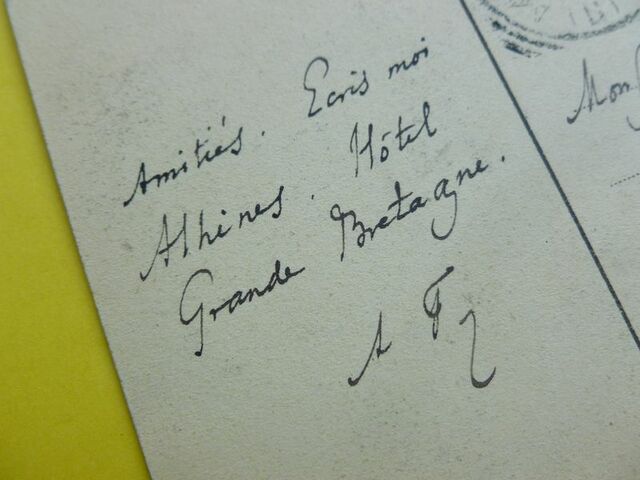 Amitiés. Ecris moi
Athènes. Hôtel
Grande Bretagne.